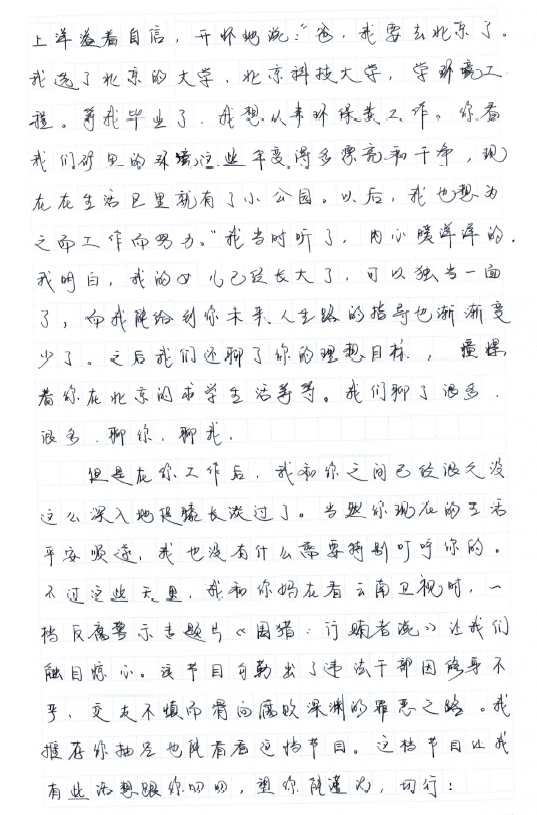 上洋溢着自信，开怀地说：“爸，我要去北京了。
我选了北京的大学，北京科技大学，学环境工
程。等我毕业了，我想从事环保类工作。你看
我们矿里的环境这些年变得多漂亮和干净，现
在在生活区里就有了小公园。以后，我也想为
之而工作而努力。”我当时听了，内心暖洋洋的，
我明白，我的女儿已经长大了，可以独当一面
了，而我能给到你未来、人生路的指导也渐渐变
少了。之后我们还聊了你的理想目标，憧憬
着你在北京的求学生活等等。我们聊了很多，
很多，聊你，聊我，
但是在你工作后，我和你之间已经很久没
这么深入地促膝长谈过了。当然你现在的生活
平安顺遂，我也没有什么需要特别叮咛你的。
不过这些天里，我和你妈在看云南卫视时，一
档反腐警示专题片《围猎：行贿者说》让我们
触目惊心。该节目勾勒出了违法干部因修身不
乎，交友不慎而滑向腐败深渊的罪恶之路。我
推荐你抽空也能看看这档节目。这档节目让我
有些话想跟你叨叨，望你能谨为，切行：